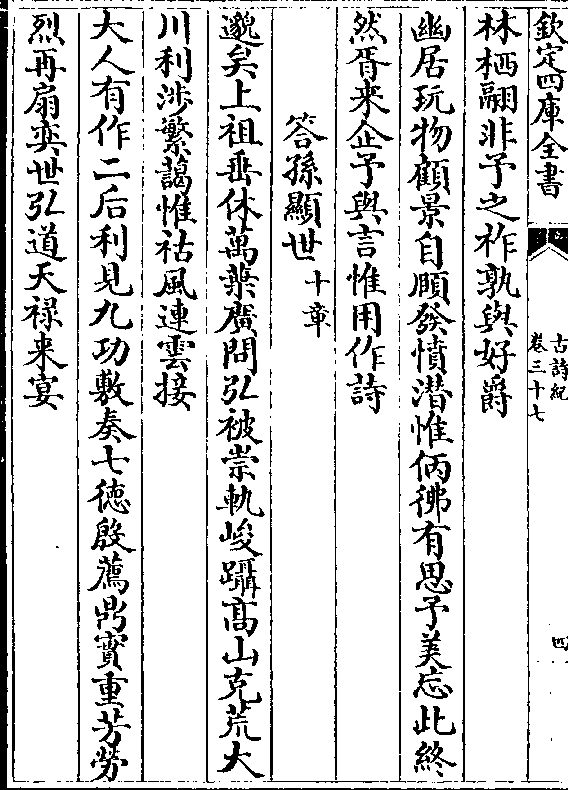 欽定四庫全書
古詩紀
卷三十七
四
林栖翮非予之祚孰與好爵
幽居玩物顧景自頤發憤潛惟俩彿有思予美忘此終
然胥來企予與言惟用作詩
答孫顯世十章
邈矣上祖垂休萬葉廣問弘被崇軌峻躡髙山克荒大
川利涉繁藹惟祜風連雲接
大人有作二后利見九功敷奏七徳殷薦鼎實重芳勞
烈再扇奕世弘道天禄来宴